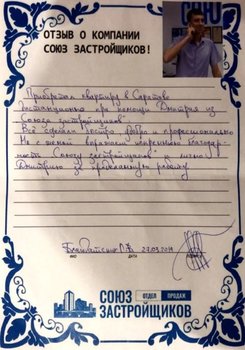 СОЮЗ
ОТЗЫВ О КОМПАНИИ
СОЮЗ ЗАСТРОЙЩИКОВ!
Приобретал квартиру в Саратове
дистанционно при помощи Дмитрия из
"Союза застройщиков"
Всё сделали быстро, добро и профессионально
Мы с женой выражаем искреннюю благодар-
ность Союзу застройщиков", лично
Дмитрию за проделанную работу
ФИО ДАТА
СОЮЗ ОТДЕЛ ПРОДАЖ
ЗАСТРОЙЩИКОВ